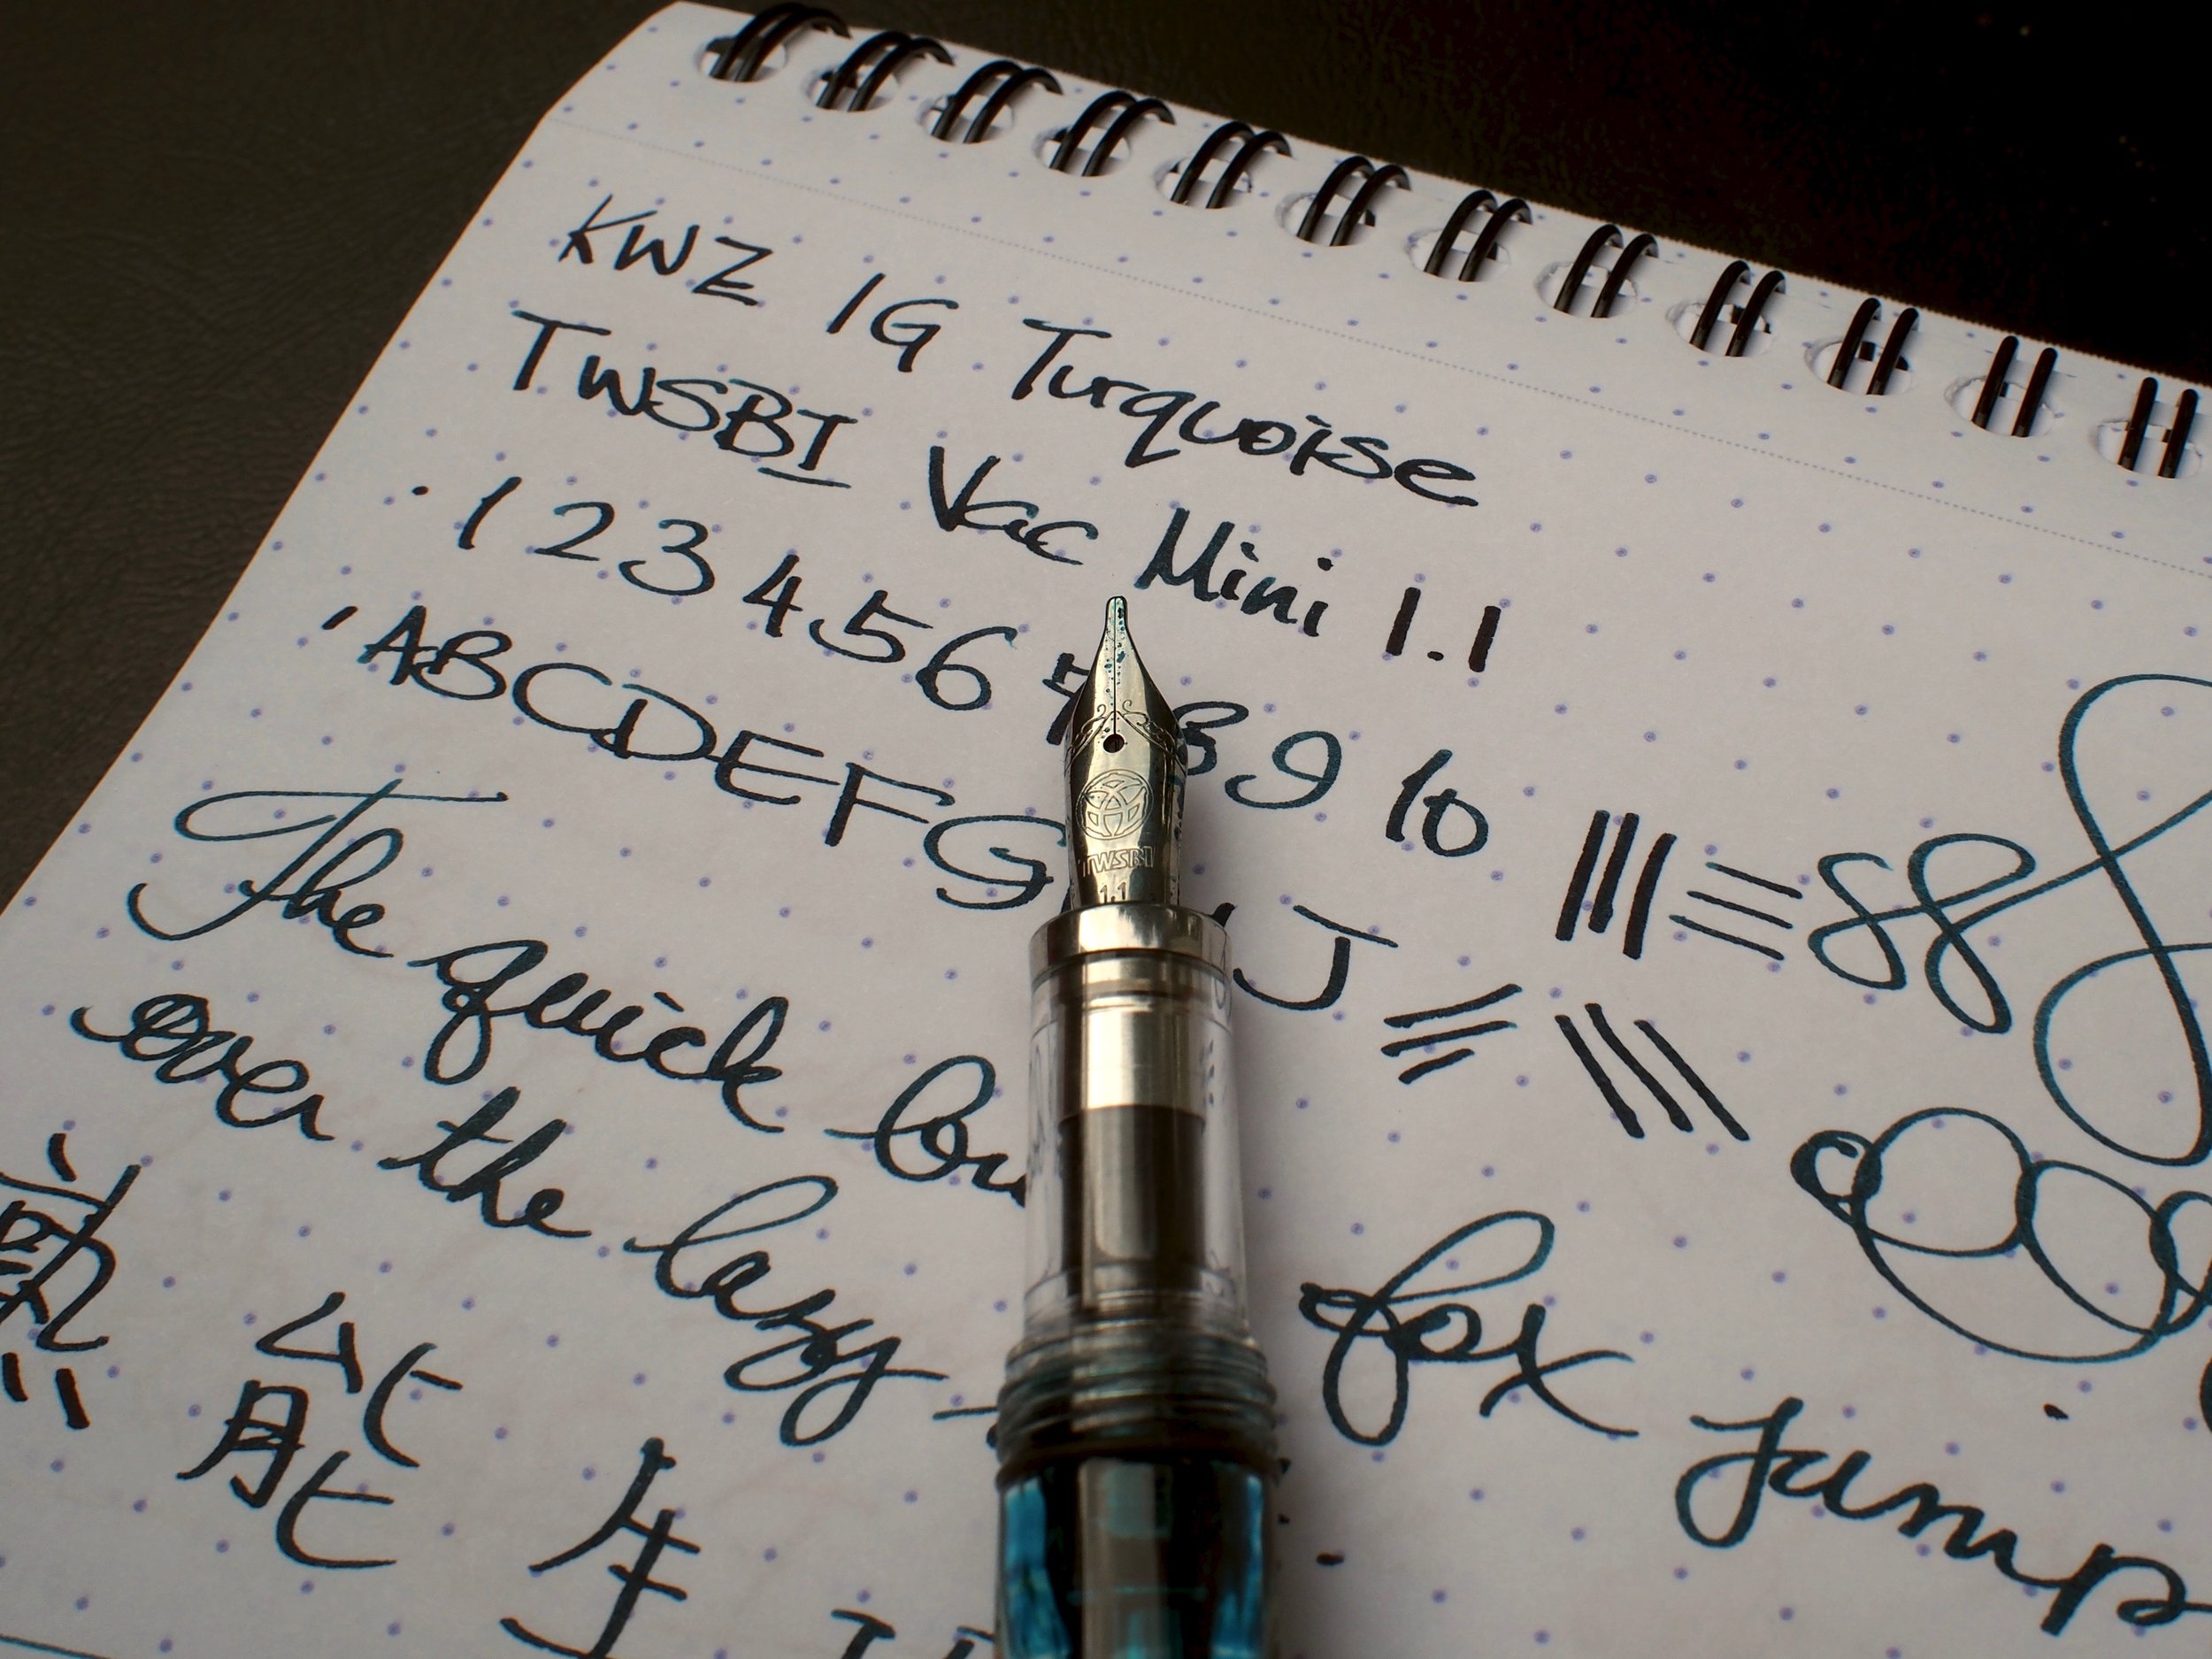 KWZ IG Turquoise
TWSBI Vac Mini 1.1
1 2 3 4 5 6 7 8 9 10
ABCDEFG J
The quick fox jump
over the lazy
能 生
TWSBI
1.1